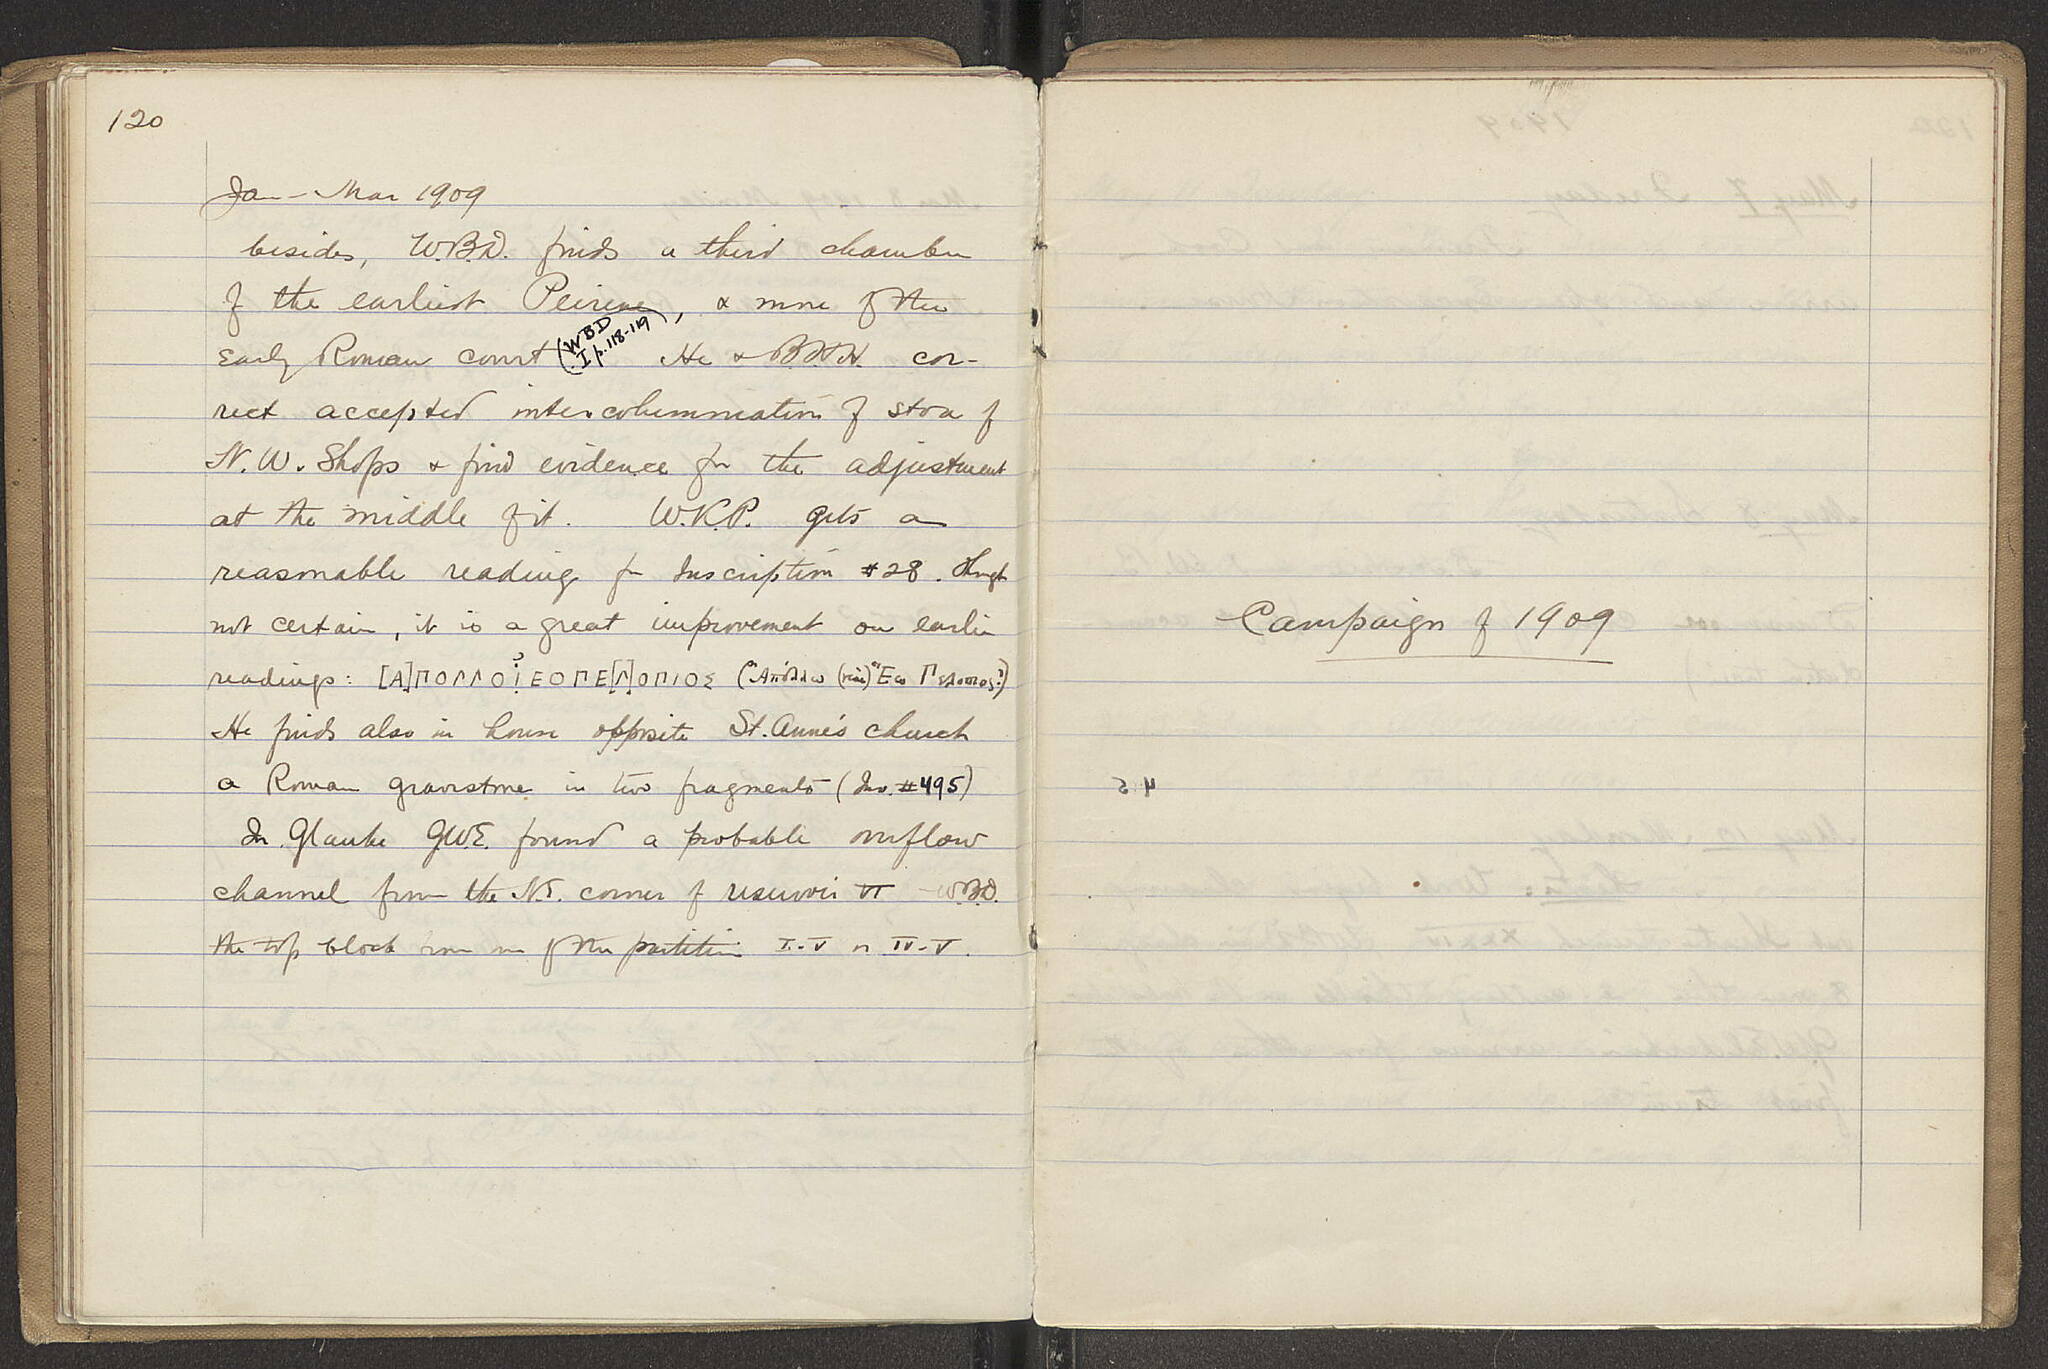 120
Jan - Mar 1909
besides, W.B.D. finds a third chamber
of the earliest Peirene, & more of the
Early Roman court (WBD I p. 118-119) He & B.H.H. cor-
rect accepted intercolumniation of stoa of
N.W. Shops & find evidence for the adjustment
at the middle of it. W.K.P. gets a
reasonable reading for Inscription #28. Though
not certain, it is a great improvement on earlier
readings: [Α]ΠΟΛΛΟ
He finds also in house opposite St. Anne's church
a Roman gravestone in two fragments (Inv. #495)
In Glauke G.W.E. found a probable overflow
channel from the N.E. corner of reservoir VI - W.B.D.
the top block of the partition I-V or IV-V.
Campaign of 1909